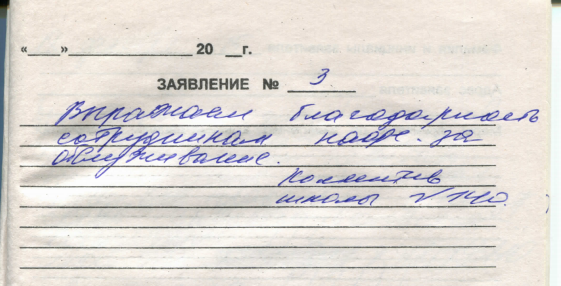 «___»______________ 20 __г.
ЗАЯВЛЕНИЕ № 3
Выражаем благодарность
сотрудникам кафе за
обслуживание.
Коллектив
школы № 140.